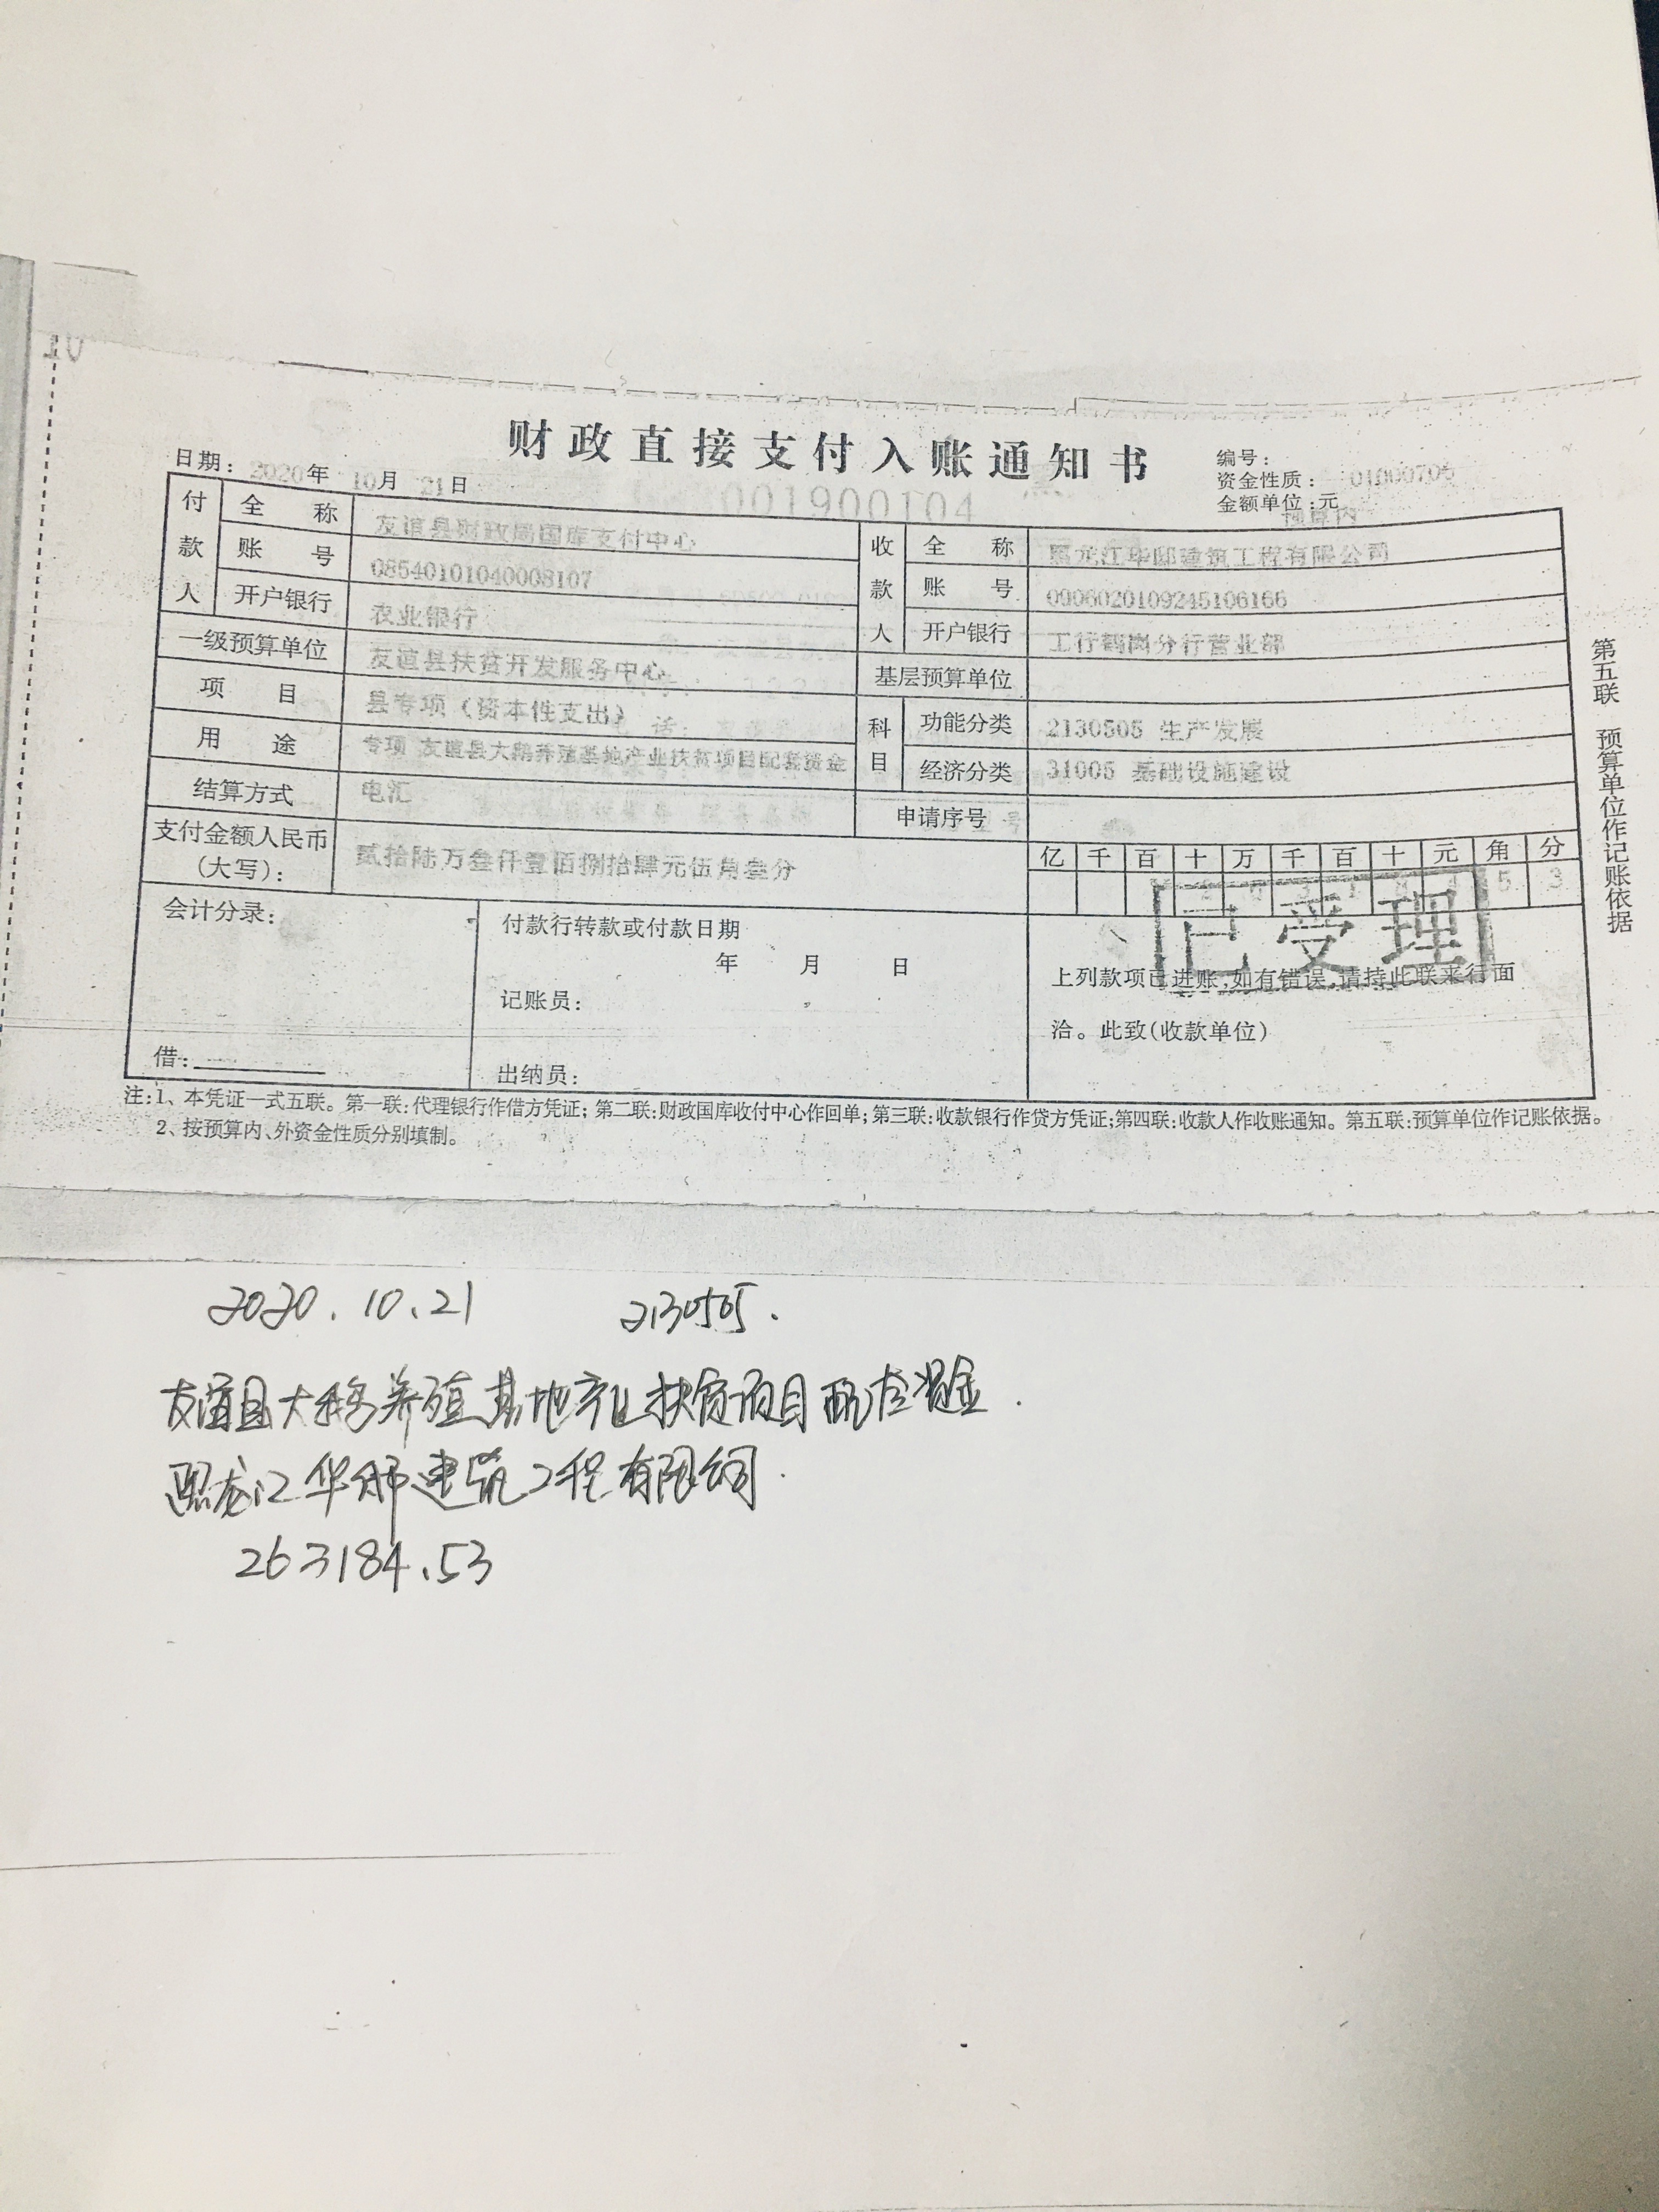 财政直接支付入账通知书
日期: 2020年 10月 21日
001900104
编号: 01000705
资金性质: 预算内
金额单位:元
付款人
全称 友谊县财政局国库支付中心
账号 08540101040008107
开户银行 农业银行
收款人
全称 黑龙江华邸建筑工程有限公司
账号 0906020109245106166
开户银行 工行鹤岗分行营业部
一级预算单位 友谊县扶贫开发服务中心
基层预算单位
项目 县专项(资本性支出)
用途 专项 友谊县大鹅养殖基地产业扶贫项目配套资金
科目
功能分类 2130505 生产发展
经济分类 31005 基础设施建设
结算方式 电汇
申请序号
支付金额人民币(大写): 贰拾陆万叁仟壹佰捌拾肆元伍角叁分
亿 千 百 十 万 千 百 十 元 角 分
5 3
已受理
会计分录:
借:
付款行转款或付款日期
年 月 日
记账员:
出纳员:
上列款项已进账,如有错误,请持此联来行面
洽。此致(收款单位)
第五联 预算单位作记账依据
注:1、本凭证一式五联。第一联:代理银行作借方凭证;第二联:财政国库收付中心作回单;第三联:收款银行作贷方凭证;第四联:收款人作收账通知。第五联:预算单位作记账依据。
2、按预算内、外资金性质分别填制。
2020.10.21 2130505.
友谊县大鹅养殖基地产业扶贫项目配套资金.
黑龙江华邸建筑工程有限公司.
263184.53